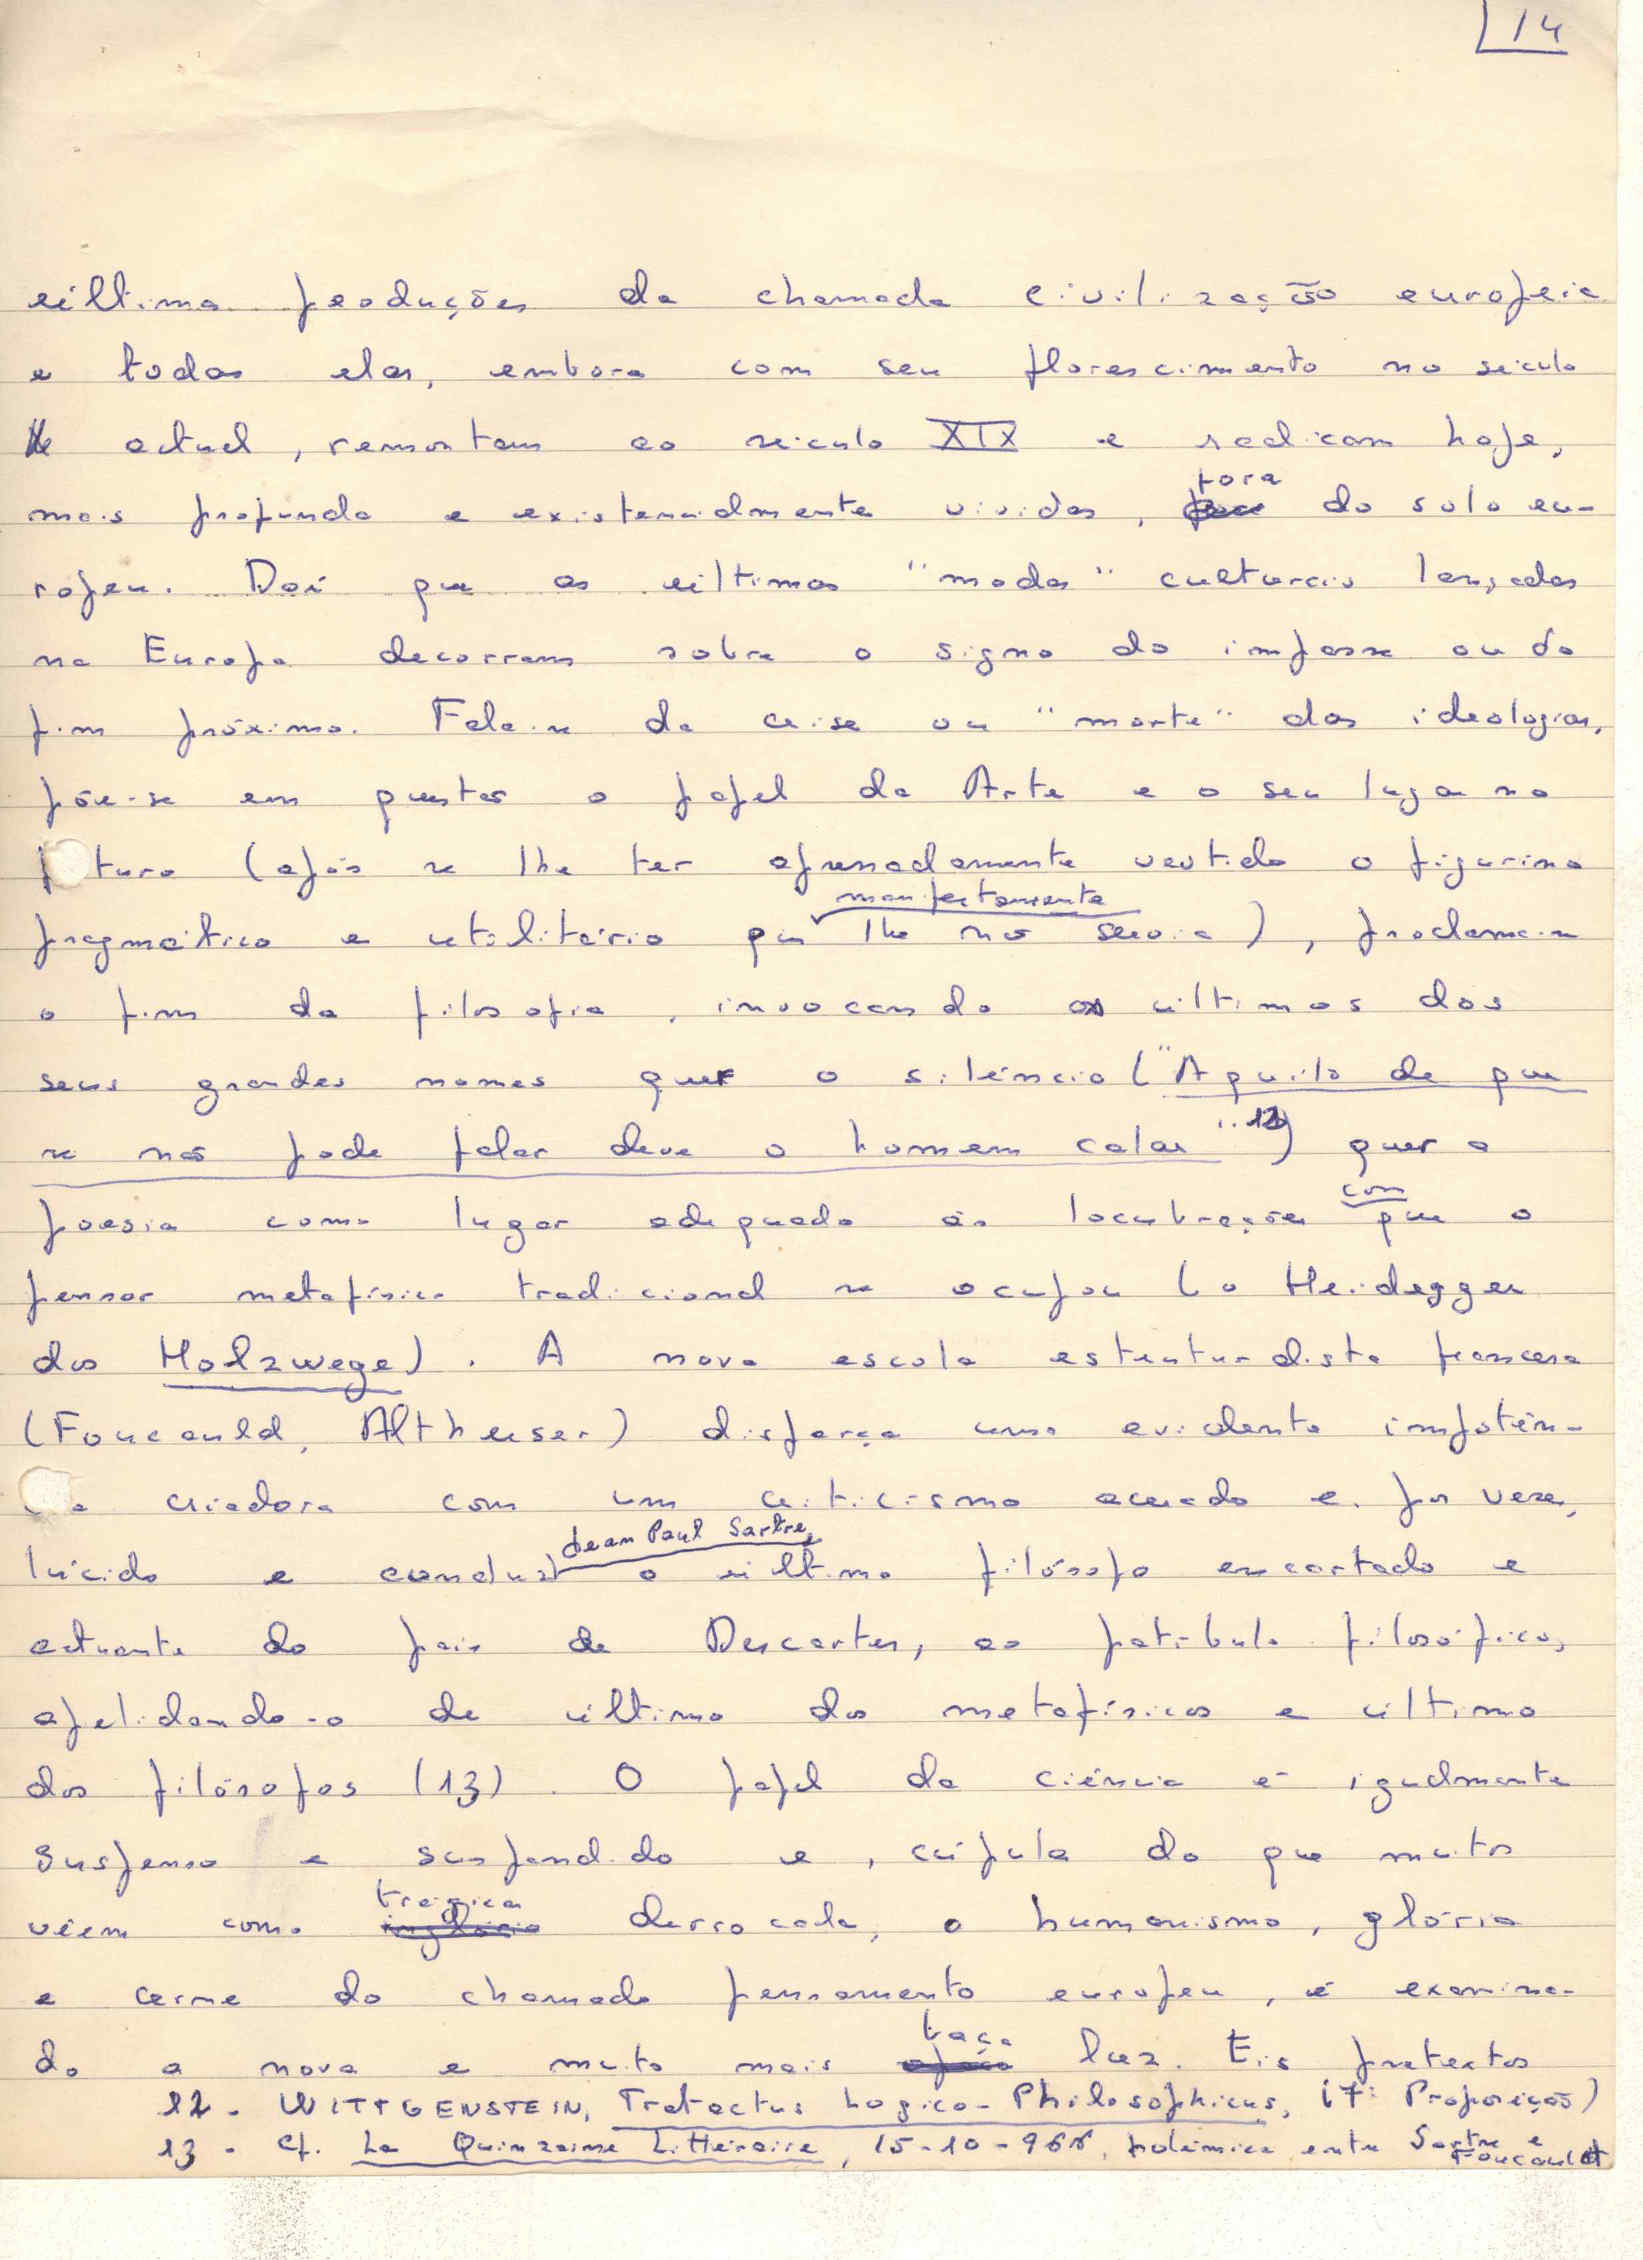 14
última produções da chamada civilização europeia
e todas elas, embora com seu florescimento no século
actual, remontam ao século XIX e radicam hoje,
mais profunda e existencialmente vividas, fora do solo eu-
ropeu. Daí que as últimas "modas" culturais lançadas
na Europa decorram sobre o signo do impasse ou do
fim próximo. Fala-se da crise ou "morte" das ideologias,
põe-se em questão o papel da Arte e o seu lugar no
futuro (após se lhe ter apressadamente vestido o figurino
manifestamente
pragmático e utilitário que lhe não servia), proclama-se
o fim da filosofia, invocando os últimos dos
seus grandes nomes quer o silêncio ("Aquilo de que
se não pode falar deve o homem calar" 12) quer a
com
poesia como lugar adequado às locubrações que o
pensar metafísico tradicional se ocupou (o Heidegger
dos Holzwege). A nova escola estruturalista francesa
(Foucauld, Altheuser) disfarça uma evidente impotên-
cia criadora com um criticismo acerado e, por vezes,
Jean Paul Sartre,
lúcido e conduz o último filósofo encartado e
actuante do país de Descartes, ao patíbulo filosófico,
apelidando-o de último dos metafísicos e último
dos filósofos (13). O papel da ciência é igualmente
suspenso e suspendido e, cúpula do que muitos
trágica
vêem como inglória derrocada, o humanismo, glória
e cerne do chamado pensamento europeu, é examina-
do a nova e muito mais baça luz. Eis pretextos
12 - WITTGENSTEIN, Tratactus Logico-Philosophicus, (7ª Proposição)
13 - Cf. La Quinzaine Littéraire, 15-10-966, polémica entre Sartre e
Foucauld